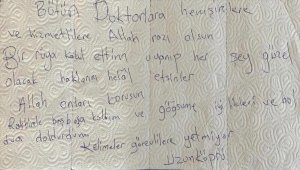 Bütün Doktorlara hemşirelere
ve hizmetlilere Allah razı olsun
Bir rüya kabul ettim uyanıp her şey güzel
olacak haklarını helal etsinler
Allah onları korusun
başbaşa kaldım ve göğsüme iğneleri ve bol
dua doldurdum
Kelimeler görevlilere yetmiyor
Uzunköprü